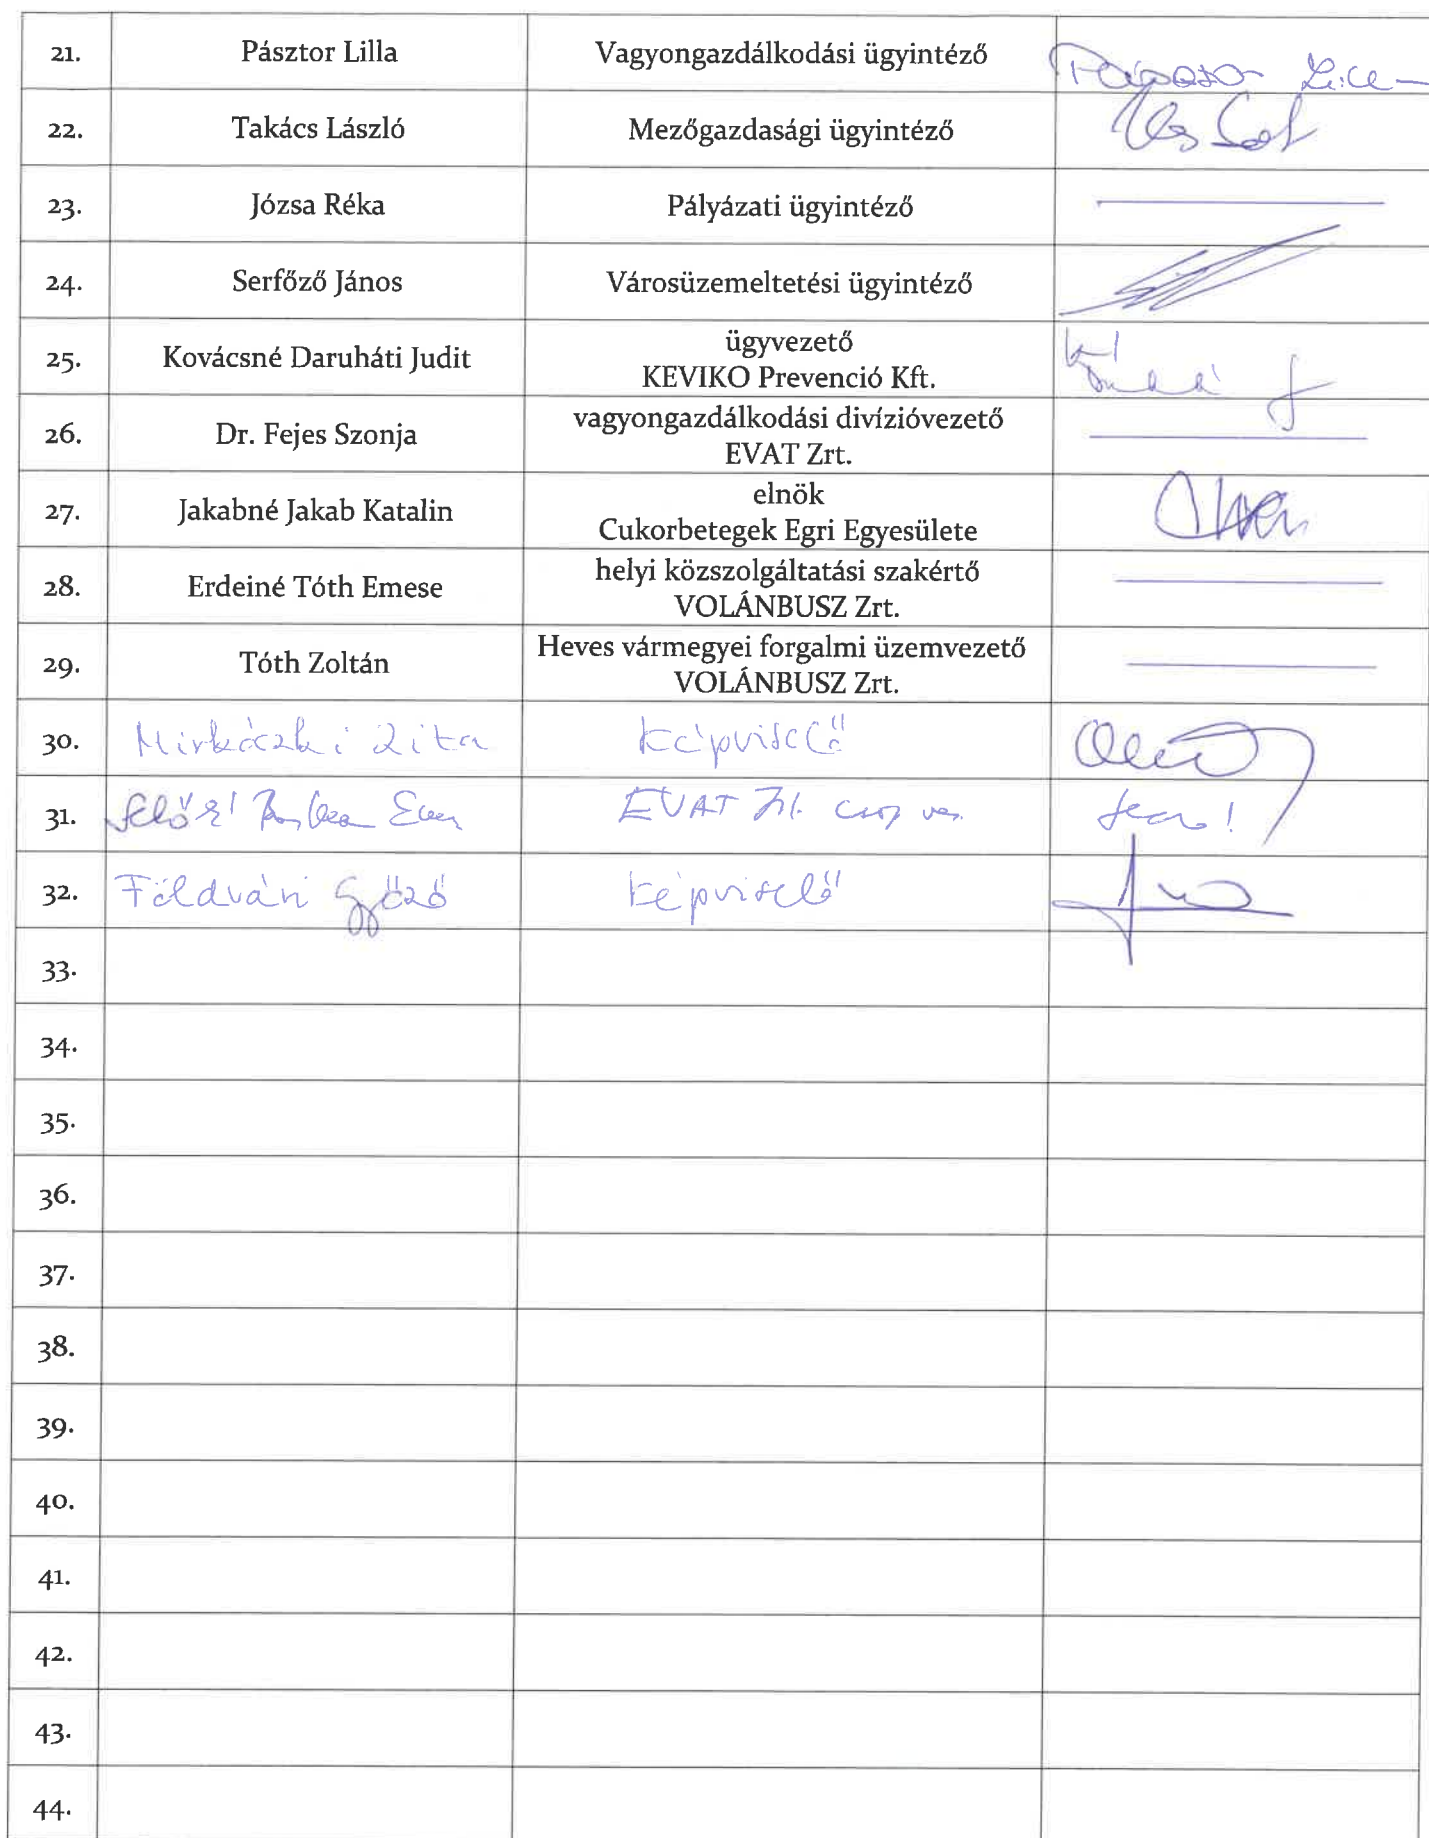 21. Pásztor Lilla Vagyongazdálkodási ügyintéző Pásztor
22. Takács László Mezőgazdasági ügyintéző
23. Józsa Réka Pályázati ügyintéző
24. Serfőző János Városüzemeltetési ügyintéző
25. Kovácsné Daruháti Judit ügyvezető
KEVIKO Prevenció Kft.
26. Dr. Fejes Szonja vagyongazdálkodási divízióvezető
EVAT Zrt.
27. Jakabné Jakab Katalin elnök
Cukorbetegek Egri Egyesülete
28. Erdeiné Tóth Emese helyi közszolgáltatási szakértő
VOLÁNBUSZ Zrt.
29. Tóth Zoltán Heves vármegyei forgalmi üzemvezető
VOLÁNBUSZ Zrt.
30. Mirkóczki Zita képviselő
31. EVAT
32. Földvári Győző képviselő
33.
34.
35.
36.
37.
38.
39.
40.
41.
42.
43.
44.